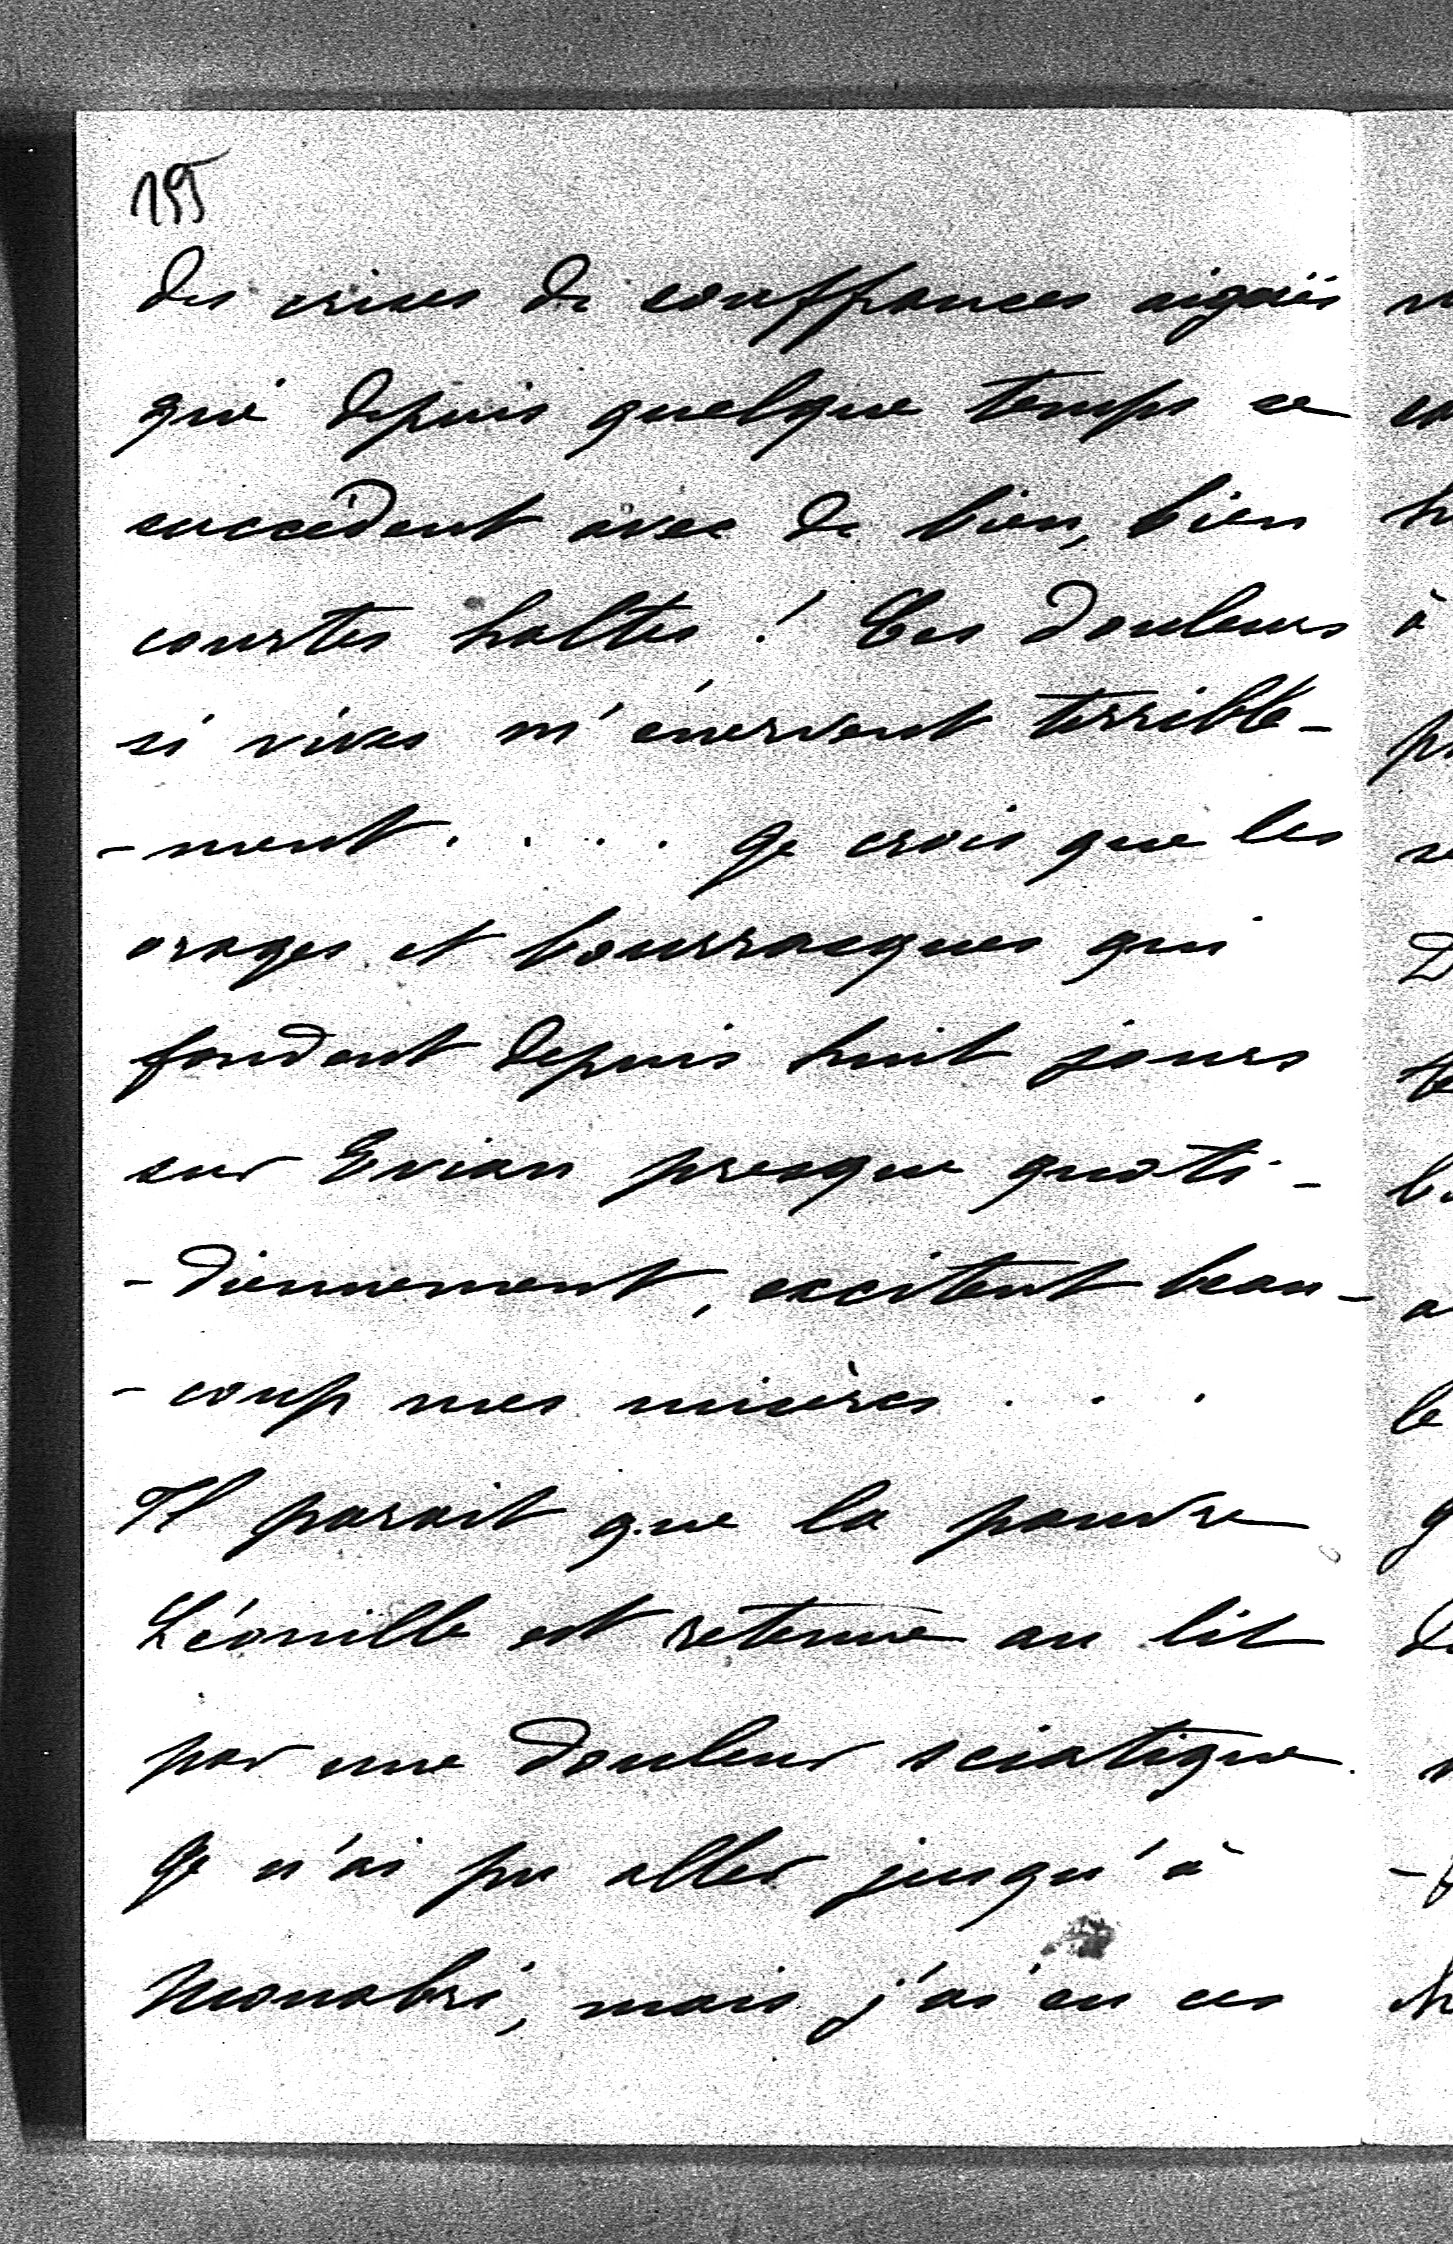 195
des crises de souffrances aigües
qui depuis quelque temps se
succèdent avec de bien, bien
courtes haltes ! Ces douleurs
si vives m'énervent terrible-
-ment . . . . Je crois que les
orages et bourrasques qui
fondent depuis huit jours
sur Evian presque quoti-
-diennement, excitent beau-
-coup mes misères . . .
Il parait que la pauvre
Léonille est retenue au lit
par une douleur sciatique.
Je n'ai pu aller jusqu'à
Monabri, mais j'ai eu ces